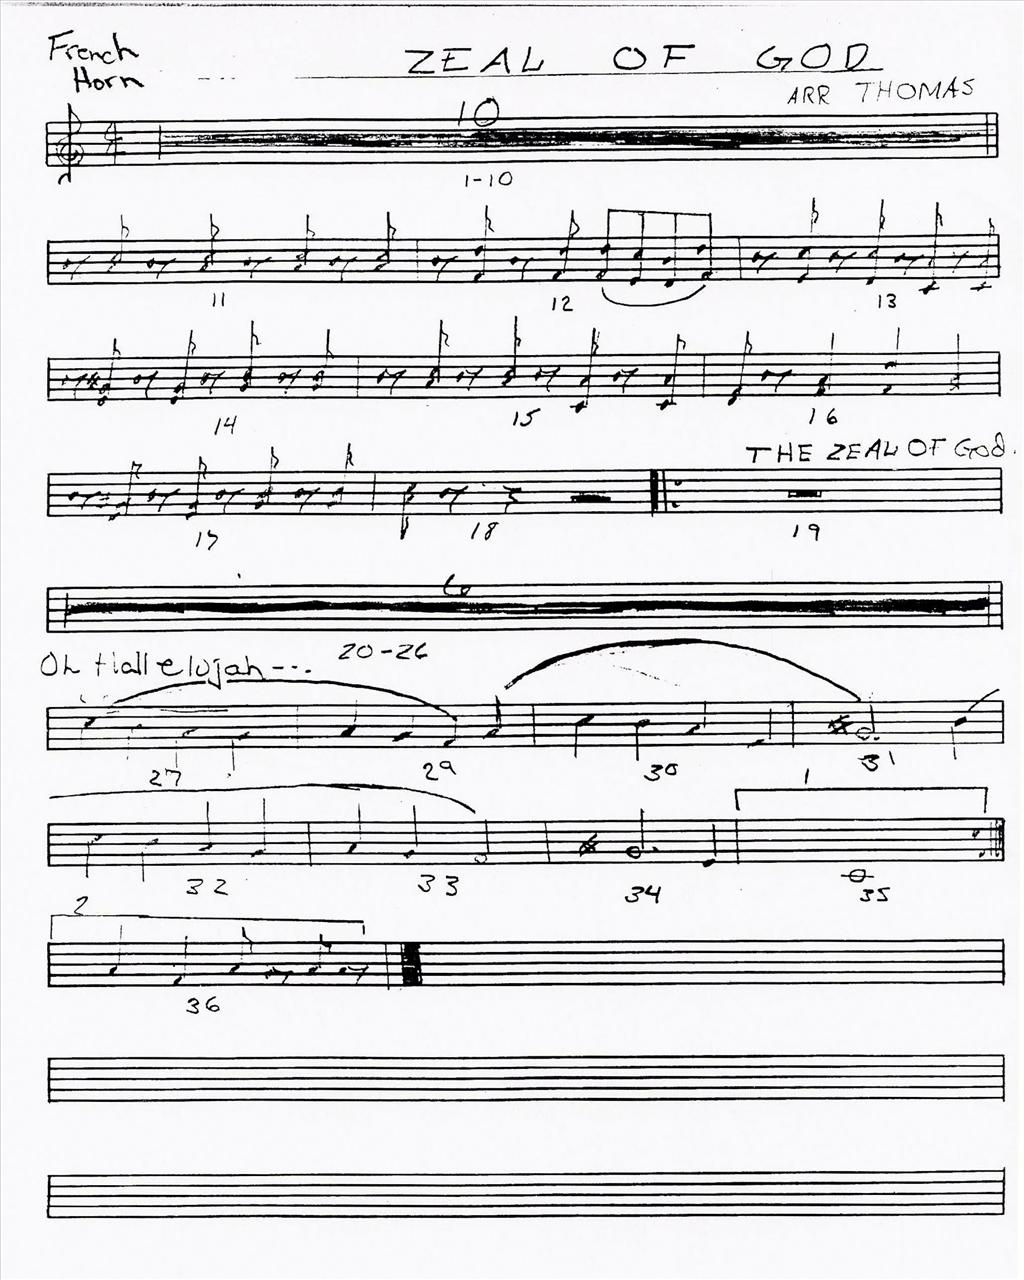 French
Horn
ZEAL OF GOD
ARR THOMAS
10
1-10
11 12 13
14 15 16
THE ZEAL OF GOD.
17 18 19
6
20-26
Oh Hallelujah---
27 29 30 31
1
32 33 34 35
2
36